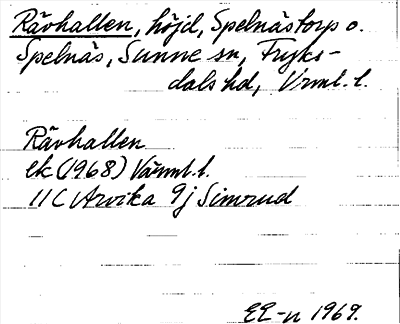 Rävhallen, höjd, Spelnästorp o.
Spelnäs, Sunne sn, Fryks-
dals hd, Vrml. l.
Rävhallen
ek (1968) Värml. l.
11 C Arvika 9j Simrud
EE-n 1969.